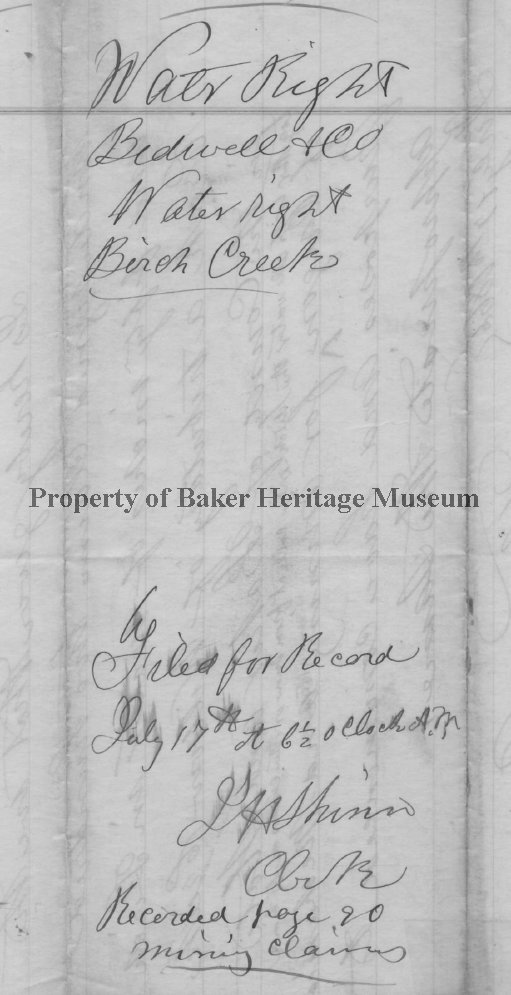 Water Right
Bedwell & Co
Water right
Birch Creek
Property of Baker Heritage Museum
Filed for Record
July 17th at 6½ oClock A.M
Shinn
Clerk
Recorded page 90
mining claims